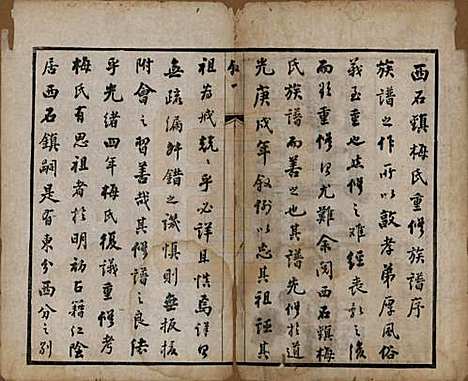 西石鎮梅氏重修族譜序
族譜之作所以敦孝弟厚風俗
義至重也然修之難經喪亂之後
而欲重修尤難余閱西石鎮梅
氏族譜而善之其譜先修於道
光庚戌年叙例以忠其祖證其
叙一
祖為城兢兢乎必詳其慎焉詳則
無疏漏舛錯之譏慎則無扳援
附會之習善哉其修譜之良法
乎光緒四年梅氏復議重修考
梅氏有思祖者於明初占籍江陰
居西石鎮嗣是有東分西分之別